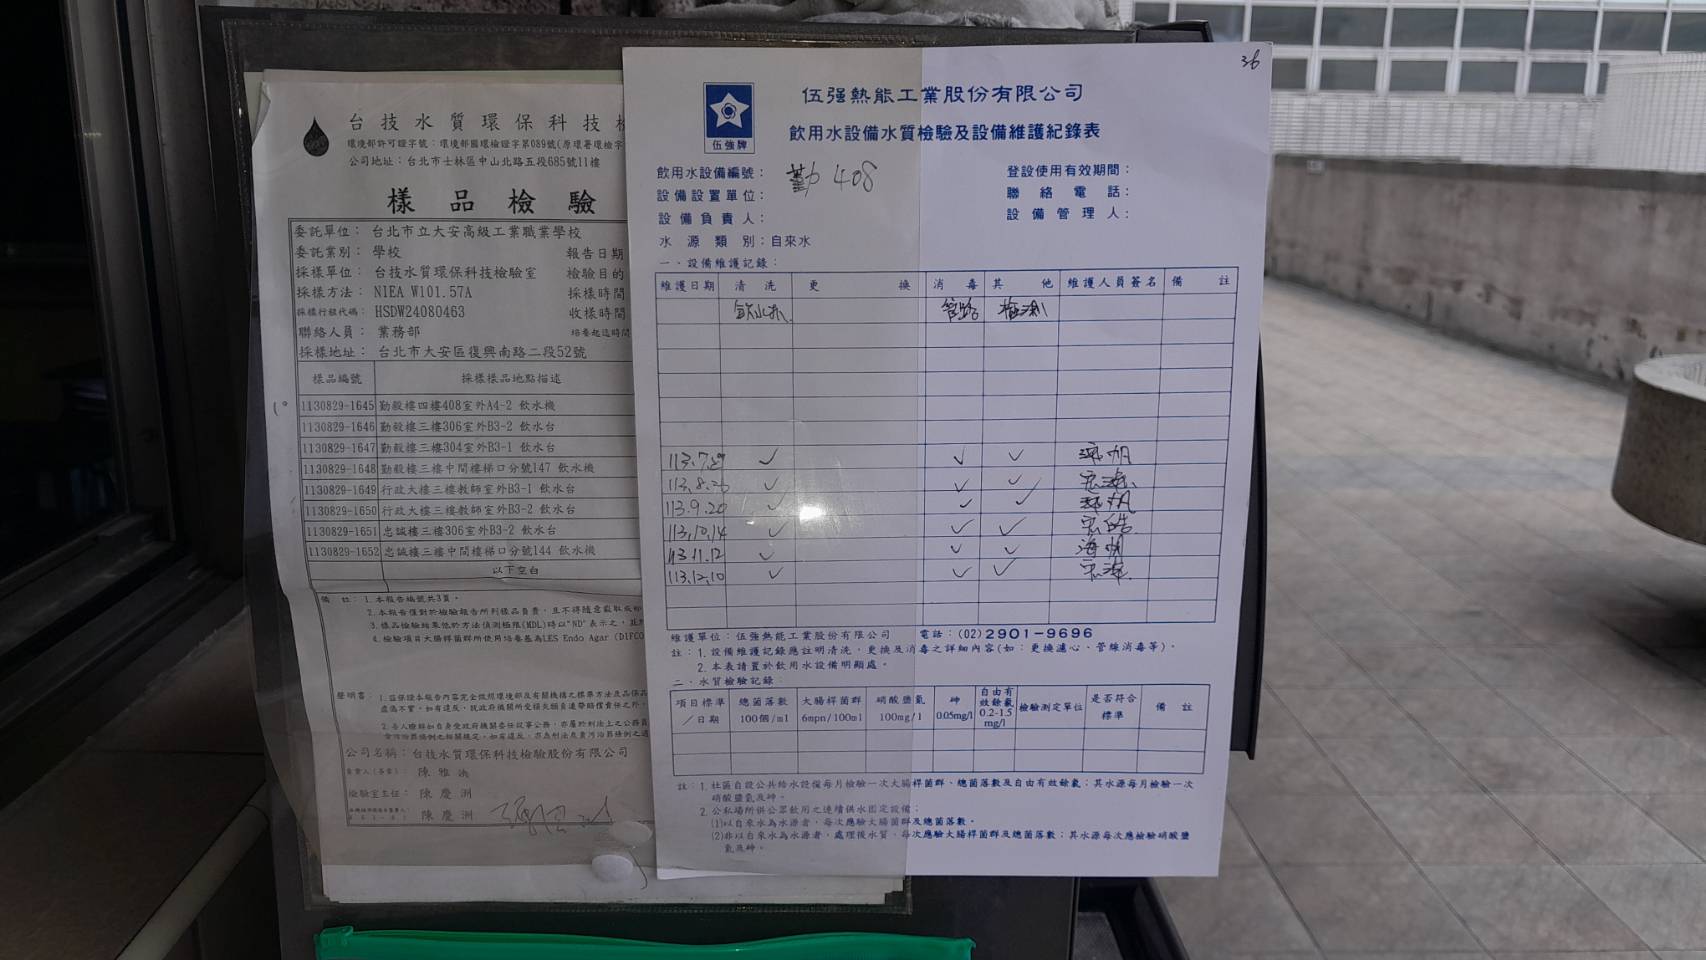 台技水質環保科技檢
環境部許可證字號：環境部國環檢證字第089號(原環署環檢字
公司地址：台北市士林區中山北路五段685號11樓
樣品檢驗
委託單位：台北市立大安高級工業職業學校
委託業別：學校 報告日期
採樣單位：台技水質環保科技檢驗室 檢驗目的
採樣方法：NIEA W101.57A 採樣時間
採樣行程代碼：HSDW24080463 收樣時間
聯絡人員：業務部 培養起迄時間
採樣地址：台北市大安區復興南路二段52號
樣品編號 採樣樣品地點描述
1130829-1645 勤毅樓四樓408室外A4-2 飲水機
1130829-1646 勤毅樓三樓306室外B3-2 飲水台
1130829-1647 勤毅樓三樓304室外B3-1 飲水台
1130829-1648 勤毅樓三樓中間樓梯口分號147 飲水機
1130829-1649 行政大樓三樓教師室外B3-1 飲水台
1130829-1650 行政大樓三樓教師室外B3-2 飲水台
1130829-1651 忠誠樓三樓306室外B3-2 飲水台
1130829-1652 忠誠樓三樓中間樓梯口分號144 飲水機
以下空白
備 註：1.本報告編號共3頁。
2.本報告僅對於檢驗報告所列樣品負責，且不得隨意截取或
3.樣品檢驗結果低於方法偵測極限(MDL)時以"ND"表示之，並
4.檢驗項目大腸桿菌群所使用培養基為LES Endo Agar (DIFCO
聲明書：1.茲保證本報告內容完全依照環境部及有關機構之標準方法及品保品
虛偽不實，如有違反，就政府機關所受損失願負連帶賠償責任之外，
公司名稱：台技水質環保科技檢驗股份有限公司
負責人(簽章)：陳雅
檢驗室主任：陳慶洲
陳慶洲
36
伍強牌
伍强熱能工業股份有限公司
飲用水設備水質檢驗及設備維護紀錄表
飲用水設備編號：勤 408 登設使用有效期間：
設備設置單位： 聯絡電話：
設備負責人： 設備管理人：
水源類別：自來水
一、設備維護記錄：
維護日期 清洗 更換 消毒 其他 維護人員簽名 備註
飲水機 管路 檢測
113.7.29 ✓ ✓ ✓
113.8.26 ✓ ✓ ✓
113.9.20 ✓ ✓ ✓
113.10.14 ✓ ✓ ✓
113.11.12 ✓ ✓ ✓ 海帆
113.12.10 ✓ ✓ ✓
維護單位：伍強熱能工業股份有限公司 電話：(02)2901-9696
註：1.設備維護記錄應註明清洗、更換及消毒之詳細內容(如：更換濾心、管線消毒等)。
2.本表請置於飲用水設備明顯處。
二、水質檢驗記錄：
項目標準／日期 總菌落數 100個/ml 大腸桿菌群 6mpn/100ml 硝酸鹽氮 100mg/l 砷 0.05mg/l 自由有效餘氯 0.2-1.5 mg/l 檢驗測定單位 是否符合標準 備註
註：1.社區自設公共給水設備每月檢驗一次大腸桿菌群、總菌落數及自由有效餘氯；其水源每月檢驗一次
硝酸鹽氮及砷。
2.公私場所供公眾飲用之連續供水固定設備：
(1)以自來水為水源者，每次應驗大腸菌群及總菌落數。
(2)非以自來水為水源者，處理後水質，每次應驗大腸桿菌群及總菌落數；其水源每次應檢驗硝酸鹽
氮及砷。